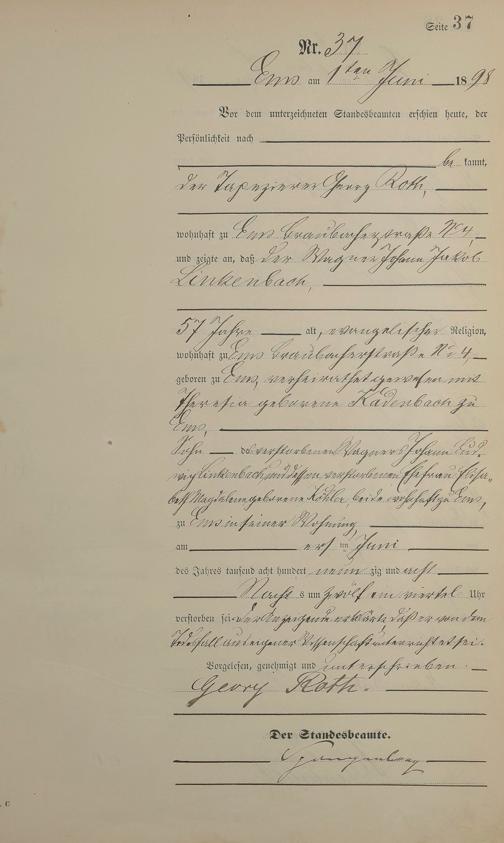 Seite 37
Nr. 37
Ems am 1ten Juni 1898
Vor dem unterzeichneten Standesbeamten erschien heute, der
Persönlichkeit nach
be kannt,
der Tapezierer Georg Roth,
wohnhaft zu Ems Braubacherstraße No 4,
und zeigte an, daß der Wagner Johann Jakob
Linkenbach,
57 Jahre alt, evangelischer Religion,
wohnhaft zu Ems Braubacherstraße No 4,
geboren zu Ems, verheirathet gewesen mit
Theresia geborene Kadenbach zu
Ems,
Sohn des verstorbenen Wagners Johann Lud-
wig Linkenbach und dessen verstorbenen Ehefrau Elisa-
beth Magdalene geborene Köhler, beide wohnhaft zu Ems,
zu Ems in seiner Wohnung,
am ersten Juni
des Jahres tausend acht hundert neun zig und acht
Nachts um zwölf ein viertel Uhr
verstorben sei. Der Anzeigende erklärte, daß er von dem
Todesfall aus eigener Wissenschaft unterrichtet sei.
Vorgelesen, genehmigt und unterschrieben.
Georg Roth.
Der Standesbeamte.
Spangenberg
C